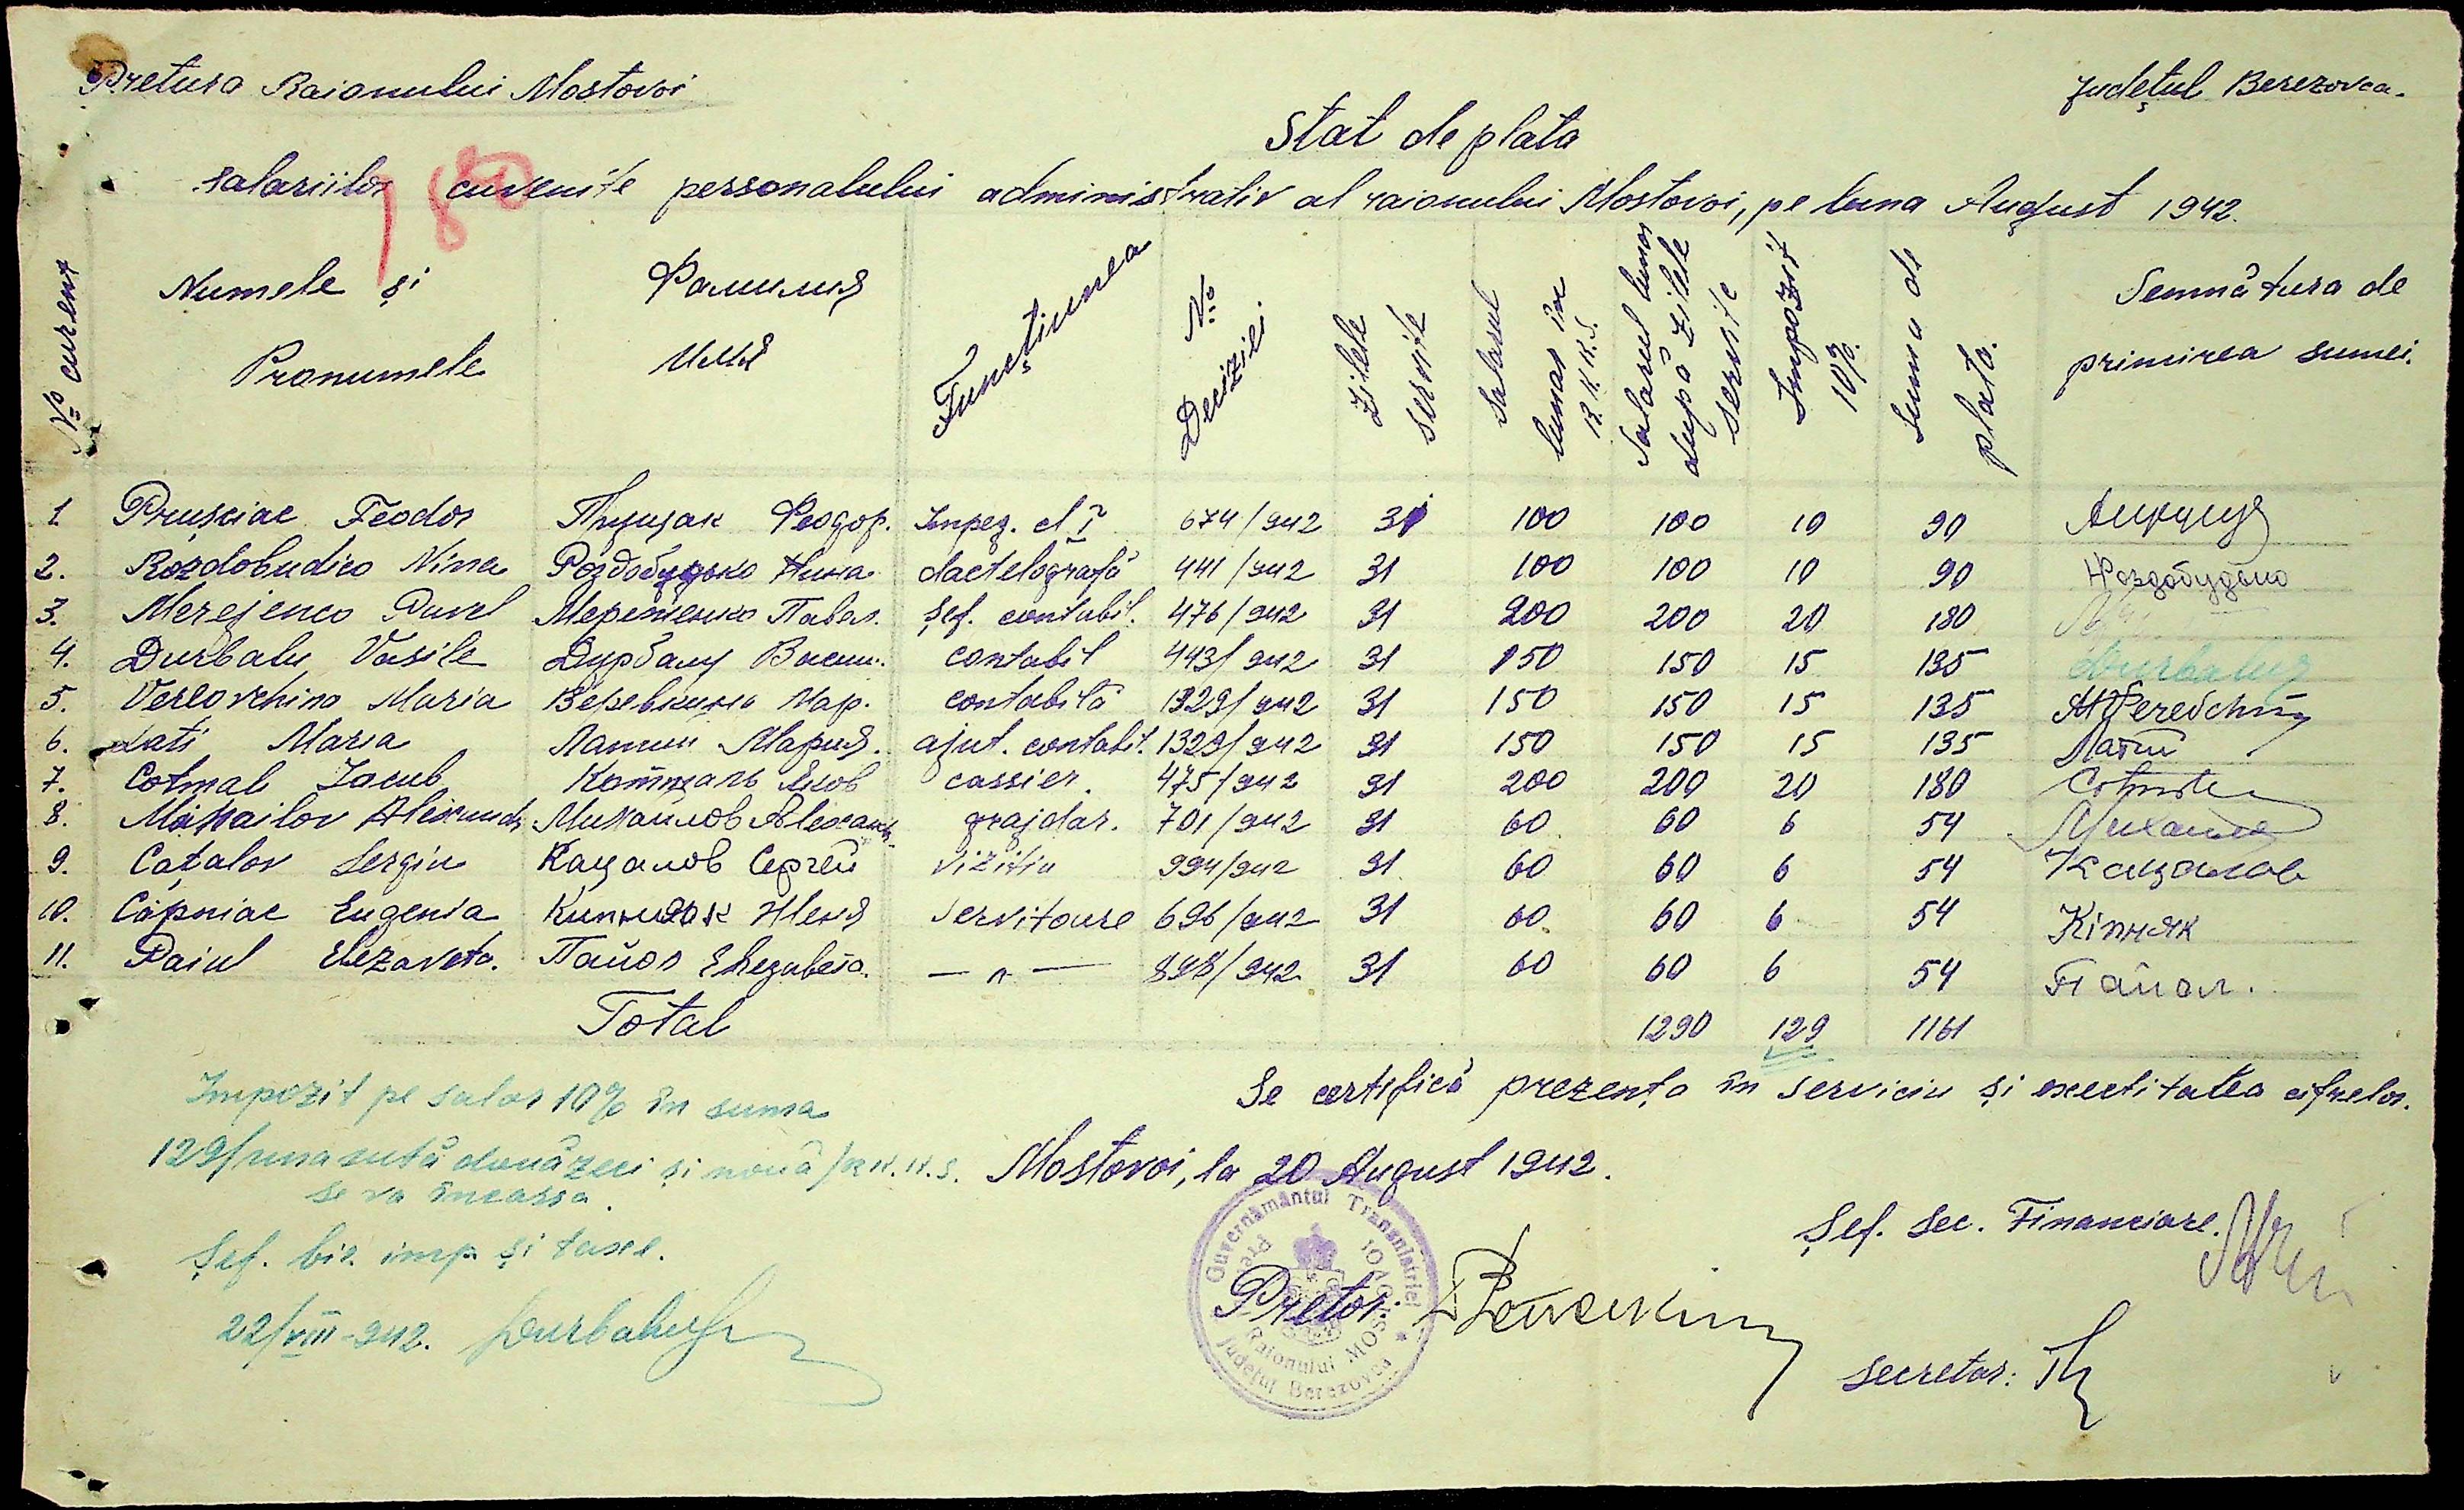 Pretura Raionului Mostovoi
Județul Berezovca.
Stat de plata
salariilor cuvenite personalului administrativ al raionului Mostovoi, pe luna August 1942.
180
№ curent
Numele și Pronumele
Фамилия Имя
Funcțiunea
№ Deciziei
Zilele servite
Salarul lunar în R.K.K.S.
Salarul lunar după zilele servite
Impozit 10%.
Suma de plata.
Semnătura de primirea sumei.
1 Prușciac Feodor Пруцак Феодор. Impeg. cl I 674/942 31 100 100 10 90
2. Rozdobudico Nina Роздобудько Нина dactelografă 441/942 31 100 100 10 90 Роздобудько
3. Merejenco Pavel Мереженко Павел. Șef. contabil. 476/942 31 200 200 20 180
4. Durbalu Vasile Дурбалу Васил. contabil 443/942 31 150 150 15 135 Durbaluș
5. Vereovchina Maria Веревкина Мар. contabilă 1329/942 31 150 150 15 135
6. Lati Maria Латии Мария. ajut. contabil. 1329/942 31 150 150 15 135 Латии
7. Cotmal Iacub Котмаль Яков cassier. 475/942 31 200 200 20 180
8. Mihailov Alexandr Михайлов Alexandr. grajdar. 701/942 31 60 60 6 54
9. Cațalov Sergiu Кацалов Сергей Vizitiu 994/942 31 60 60 6 54 Кацалов
10. Căpniac Eugenia Кипняк Женя Servitoare 696/942 31 60 60 6 54 Кіпняк
11. Paiul Elezaveta. Пайол Elezaveta. — " — 898/942 31 60 60 6 54 Пайол.
Total 1290 129 1161
Se certifică prezența în serviciu și exectitatea cifrelor.
Mostovoi, la 20 August 1942.
Impozit pe salar 10% în suma
129/una sută douăzeci și nouă/R.K.K.S.
se va încassa.
Șef. bir. imp și taxe.
22/VIII-942. Durbaluș
Guvernământul Transnistriei
Județul Berezovca
Pretura Raionului MOSTOVOI
Pretor:
Șef. Sec. Financiare.
Secretar: